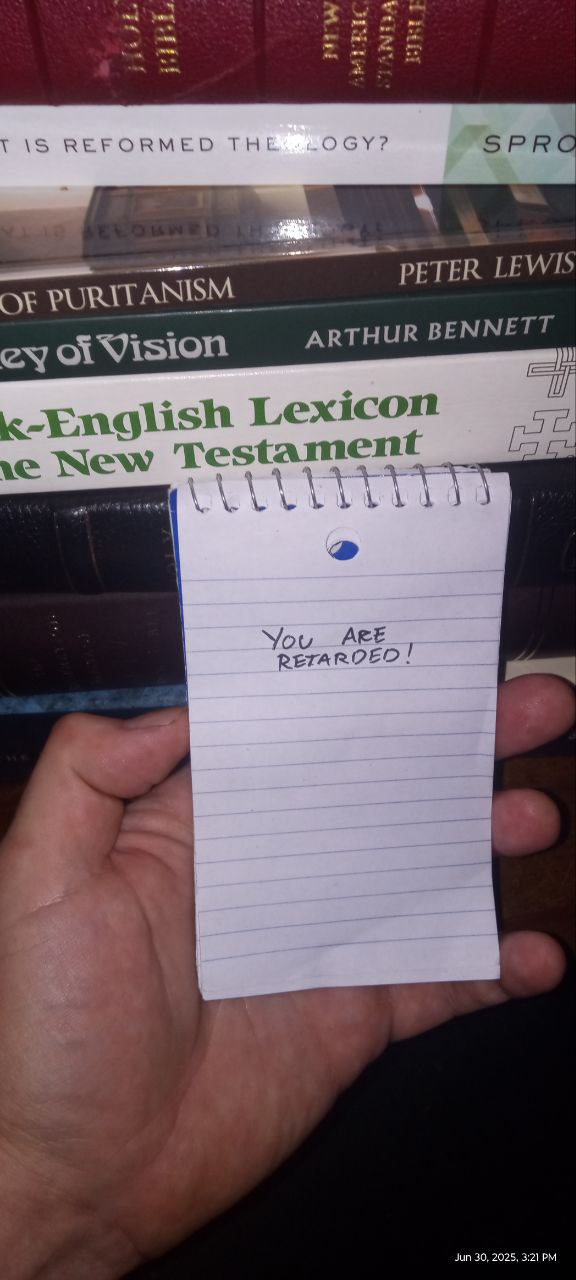 HOLY
BIBLE
NEW
AMERIC
STANDA
BIBLE
T IS REFORMED THEOLOGY? SPRO
OF PURITANISM PETER LEWIS
ey of Vision ARTHUR BENNETT
k-English Lexicon
he New Testament
YOU ARE
RETARDED!
Jun 30, 2025, 3:21 PM